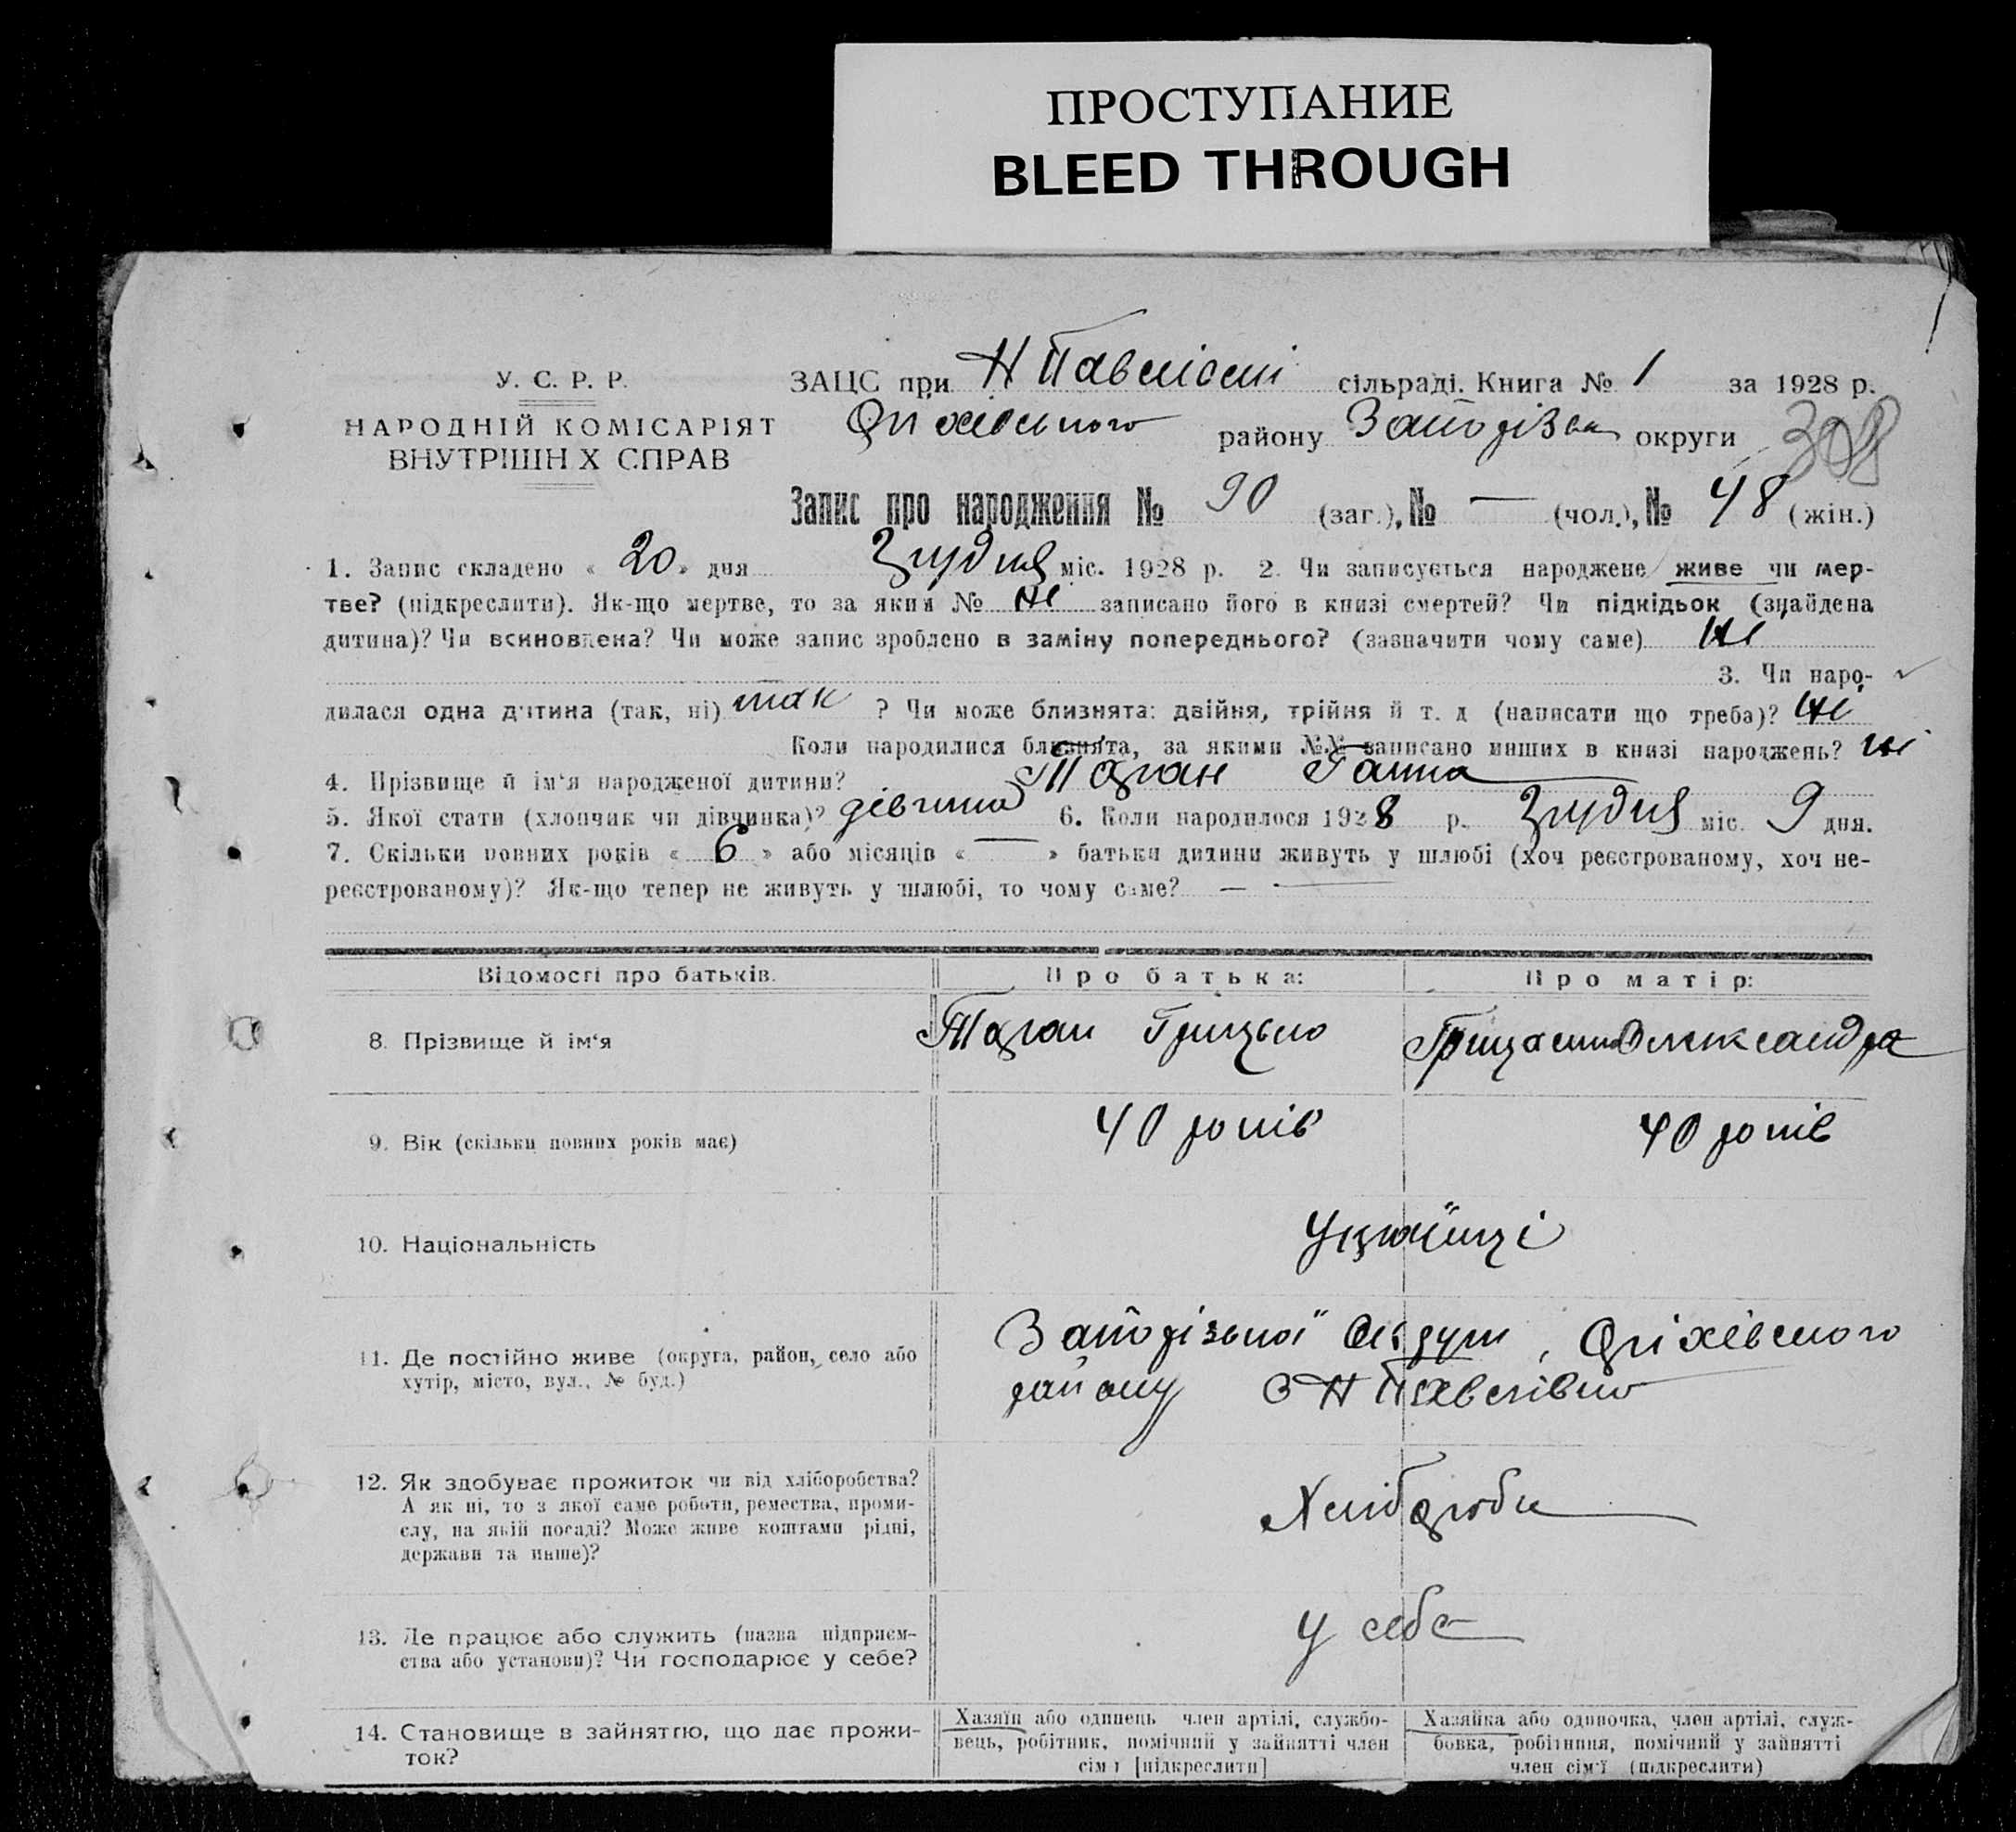 ПРОСТУПАНИЕ
BLEED THROUGH
У. С. Р. Р.
НАРОДНІЙ КОМІСАРІЯТ
ВНУТРІШН Х СПРАВ
ЗАЦС при Н Павлівській сільраді. Книга № 1 за 1928 р.
Оріхівського району Запорізьк округи 308
Запис про народження № 90 (заг.), № — (чол.), № 48 (жін.)
1. Запис складено « 20 » дня грудня міс. 1928 р. 2. Чи записується народжене живе чи мер-
тве? (підкреслити). Як-що мертве, то за яким № ні записано його в книзі смертей? Чи підкідьок (знайдена
дитина)? Чи всиновлена? Чи може запис зроблено в заміну попереднього? (зазначити чому саме) ні
3. Чи наро-
дилася одна дитина (так, ні) так ? Чи може близнята: двійня, трійня й т. д (написати що треба)? ні
Коли народилися близнята, за якими №№ записано инших в книзі народжень? ні
4. Прізвище й ім'я народженої дитини? Таран Ганна
5. Якої стати (хлопчик чи дівчинка)? дівчина 6. Коли народилося 1928 р. грудня міс. 9 дня.
7. Скільки повних років « 6 » або місяців « — » батьки дитини живуть у шлюбі (хоч реєстрованому, хоч не-
реєстрованому)? Як-що тепер не живуть у шлюбі, то чому саме? —
Відомості про батьків. Про батька: Про матір:
8. Прізвище й ім'я Таран Грицько Олександра
9. Вік (скільки повних років має) 40 років 40 років
10. Національність Українці
11. Де постійно живе (округа, район, село або Запорізької Округи, Оріхівського
хутір, місто, вул., № буд.) району Н Павлівка
12. Як здобуває прожиток чи від хліборобства? Хлібороби
А як ні, то з якої саме роботи, ремества, проми-
слу, на якій посаді? Може живе коштами рідні,
держави та инше)?
13. Де працює або служить (назва підприєм- у себе
ства або установи)? Чи господарює у себе?
14. Становище в зайняттю, що дає прожи-
ток?
Хазяїн або одинець член артілі, службо-
вець, робітник, помічний у зайнятті член
сім'ї [підкреслити]
Хазяйка або одиночка, член артілі, служ-
бовка, робітниця, помічний у зайнятті
член сім'ї (підкреслити)